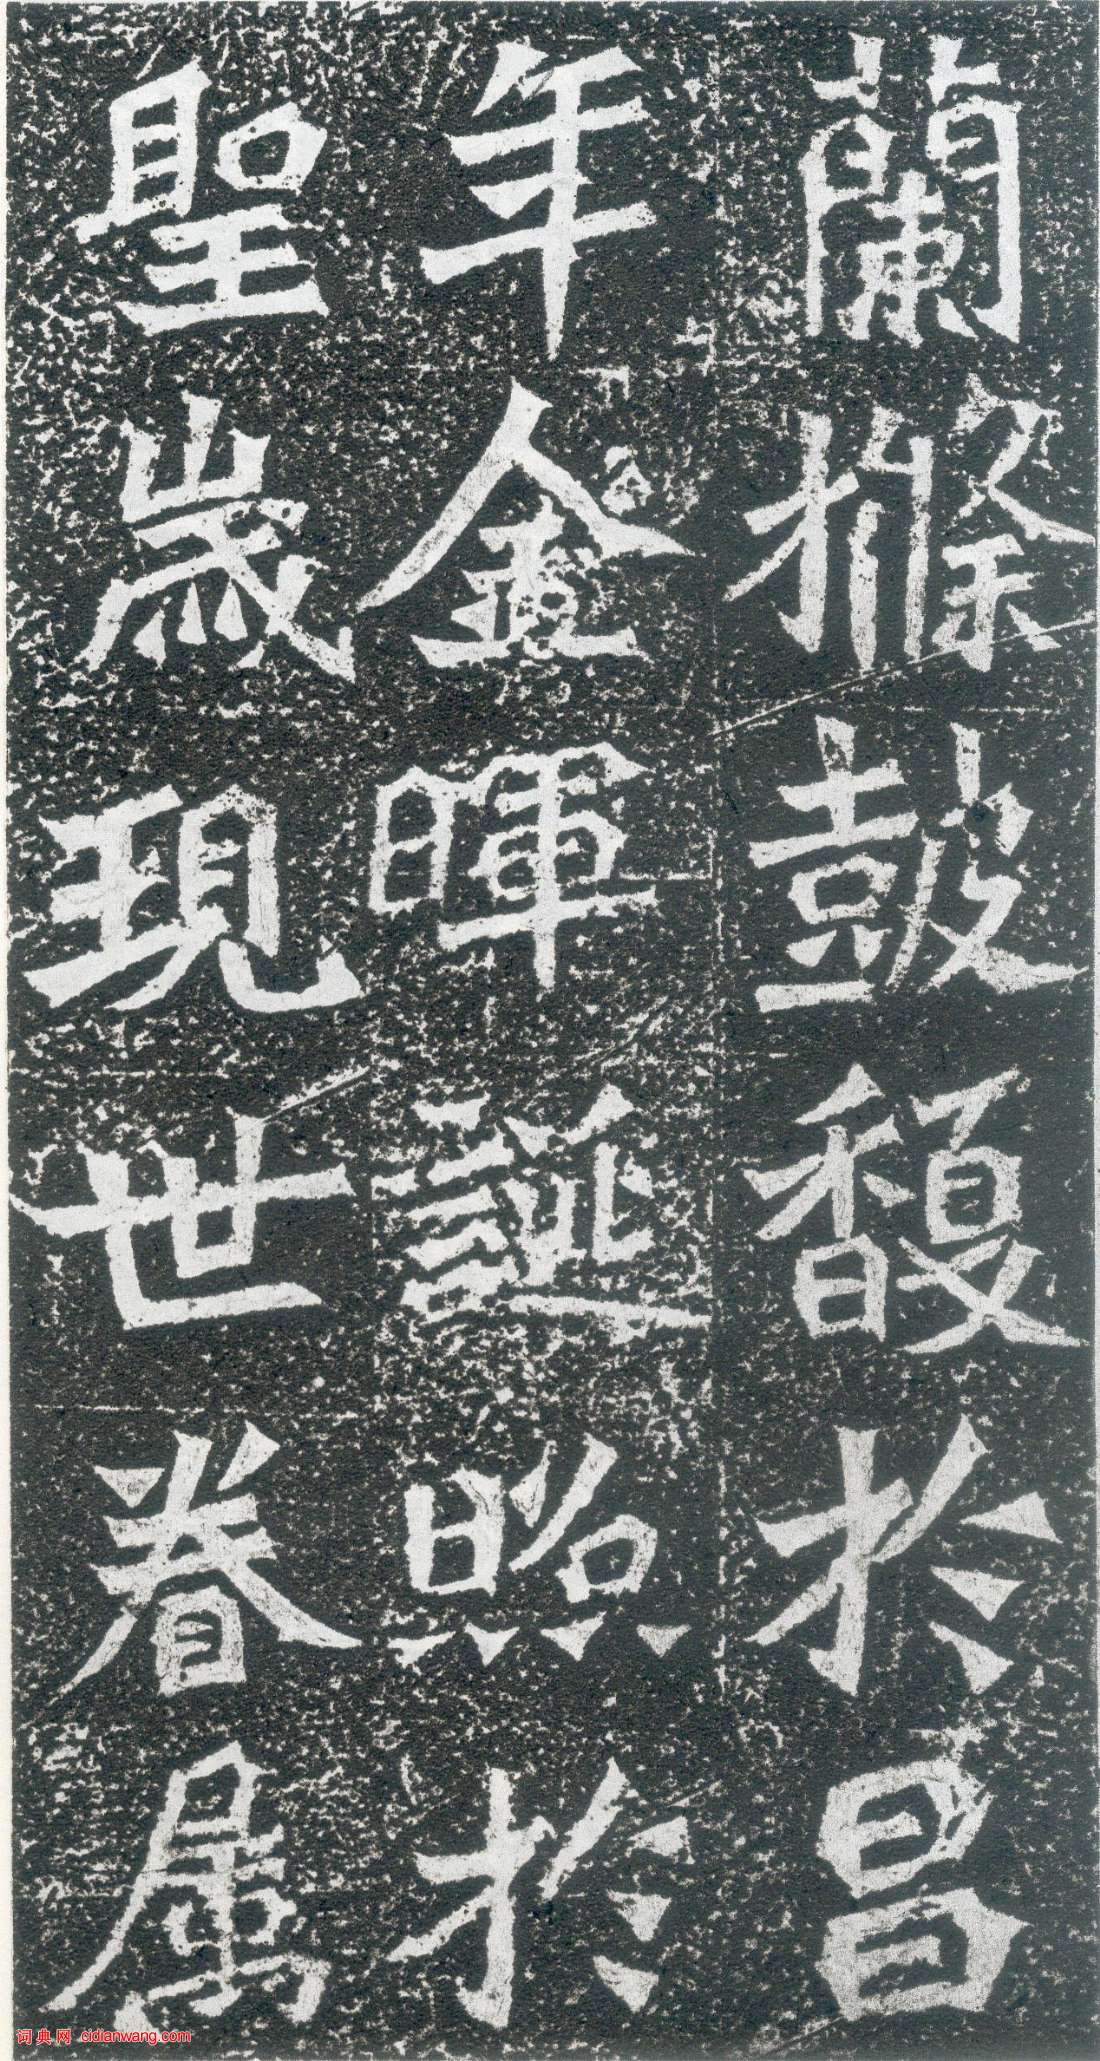 蘭條鼓馥於昌
年金暉誕照於
聖歲現世眷属
词典网 cidianwang.com